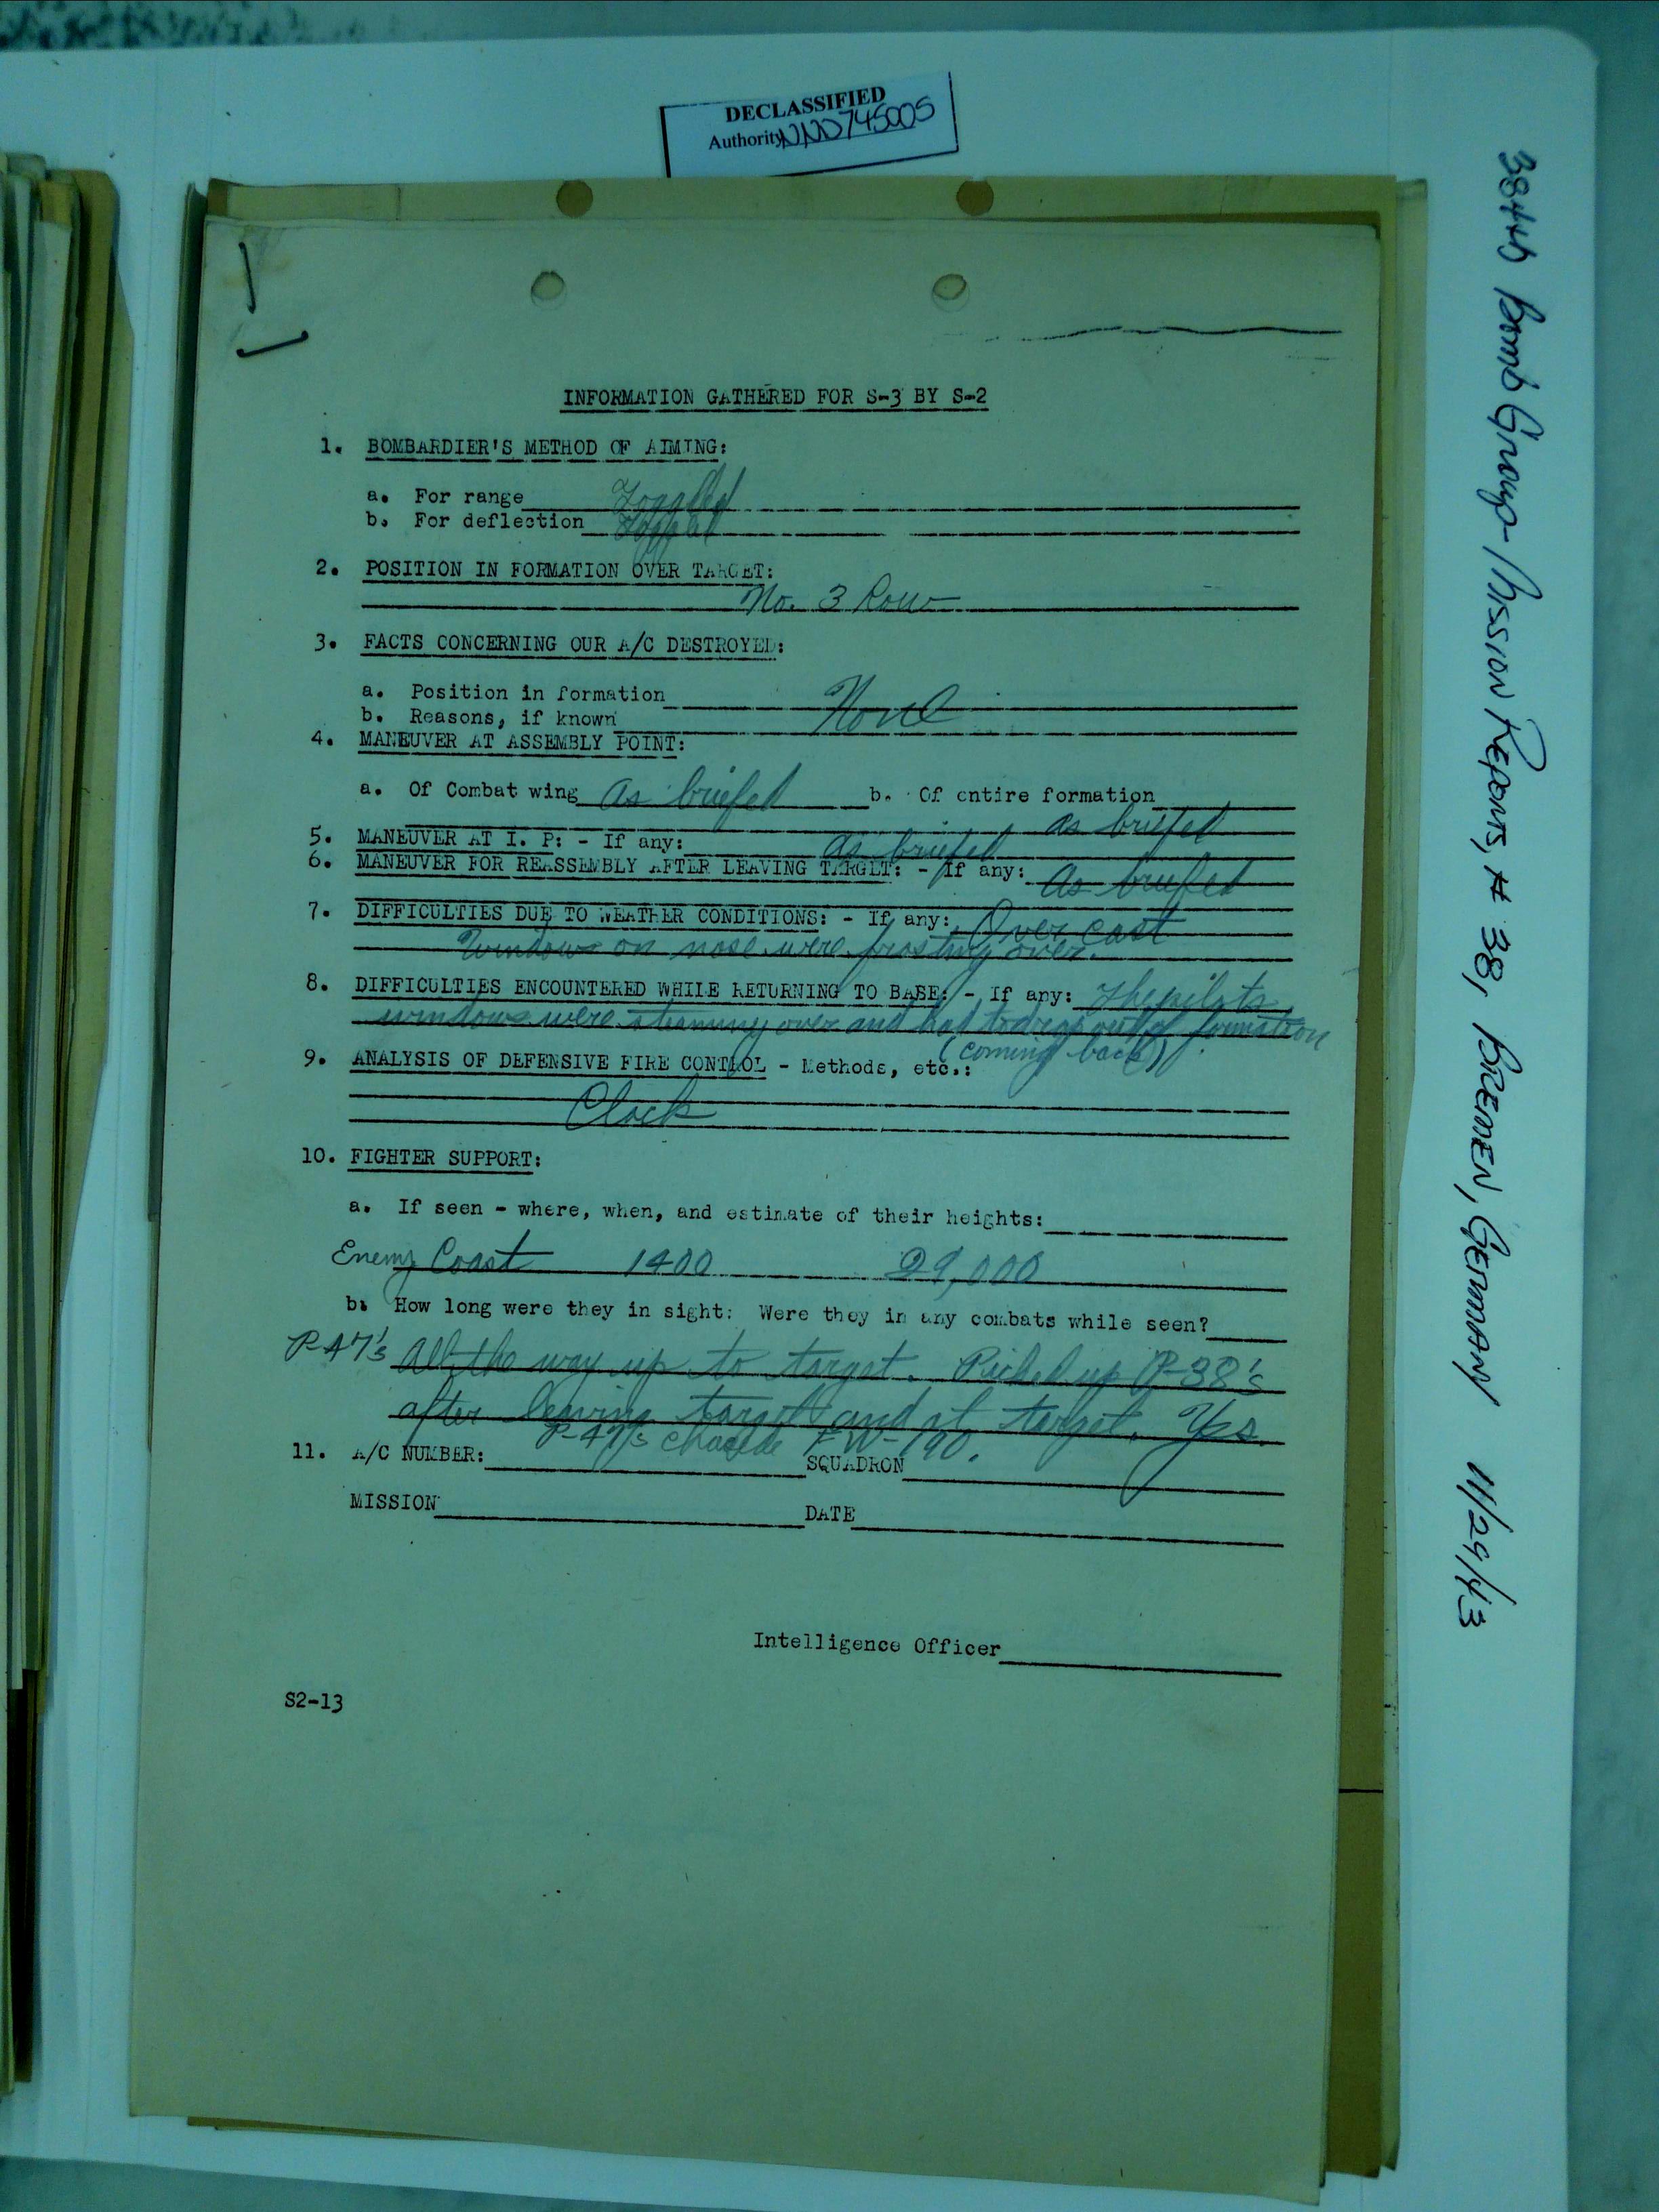 DECLASSIFIED
Authority NND745005
INFORMATION GATHERED FOR S-3 BY S-2
1. BOMBARDIER'S METHOD OF AIMING:
a. For range Toggled
b. For deflection Toggled
2. POSITION IN FORMATION OVER TARGET:
No. 3 Low
3. FACTS CONCERNING OUR A/C DESTROYED:
a. Position in formation None
b. Reasons, if known
4. MANEUVER AT ASSEMBLY POINT:
a. Of Combat wing as briefed b. Of entire formation
as briefed
5. MANEUVER AT I. P: - If any: as briefed
6. MANEUVER FOR REASSEMBLY AFTER LEAVING TARGET: - If any: As briefed
7. DIFFICULTIES DUE TO WEATHER CONDITIONS: - If any: Over cast
Windows on nose were frosting over.
8. DIFFICULTIES ENCOUNTERED WHILE RETURNING TO BASE: - If any: The pilots
windows were steaming over and had to drop out of formation
(coming back).
9. ANALYSIS OF DEFENSIVE FIRE CONTROL - Methods, etc.:
Clock
10. FIGHTER SUPPORT:
a. If seen - where, when, and estimate of their heights:
Enemy Coast 1400 29,000
b. How long were they in sight: Were they in any combats while seen?
P-47's All the way up to target. Picked up P-38's
after leaving target and at target. Yes.
P-47's chasede FW-190.
11. A/C NUMBER: SQUADRON
MISSION DATE
Intelligence Officer
S2-13
384th Bomb Group - Mission Reports, # 38, BREMEN, GERMANY 11/29/43